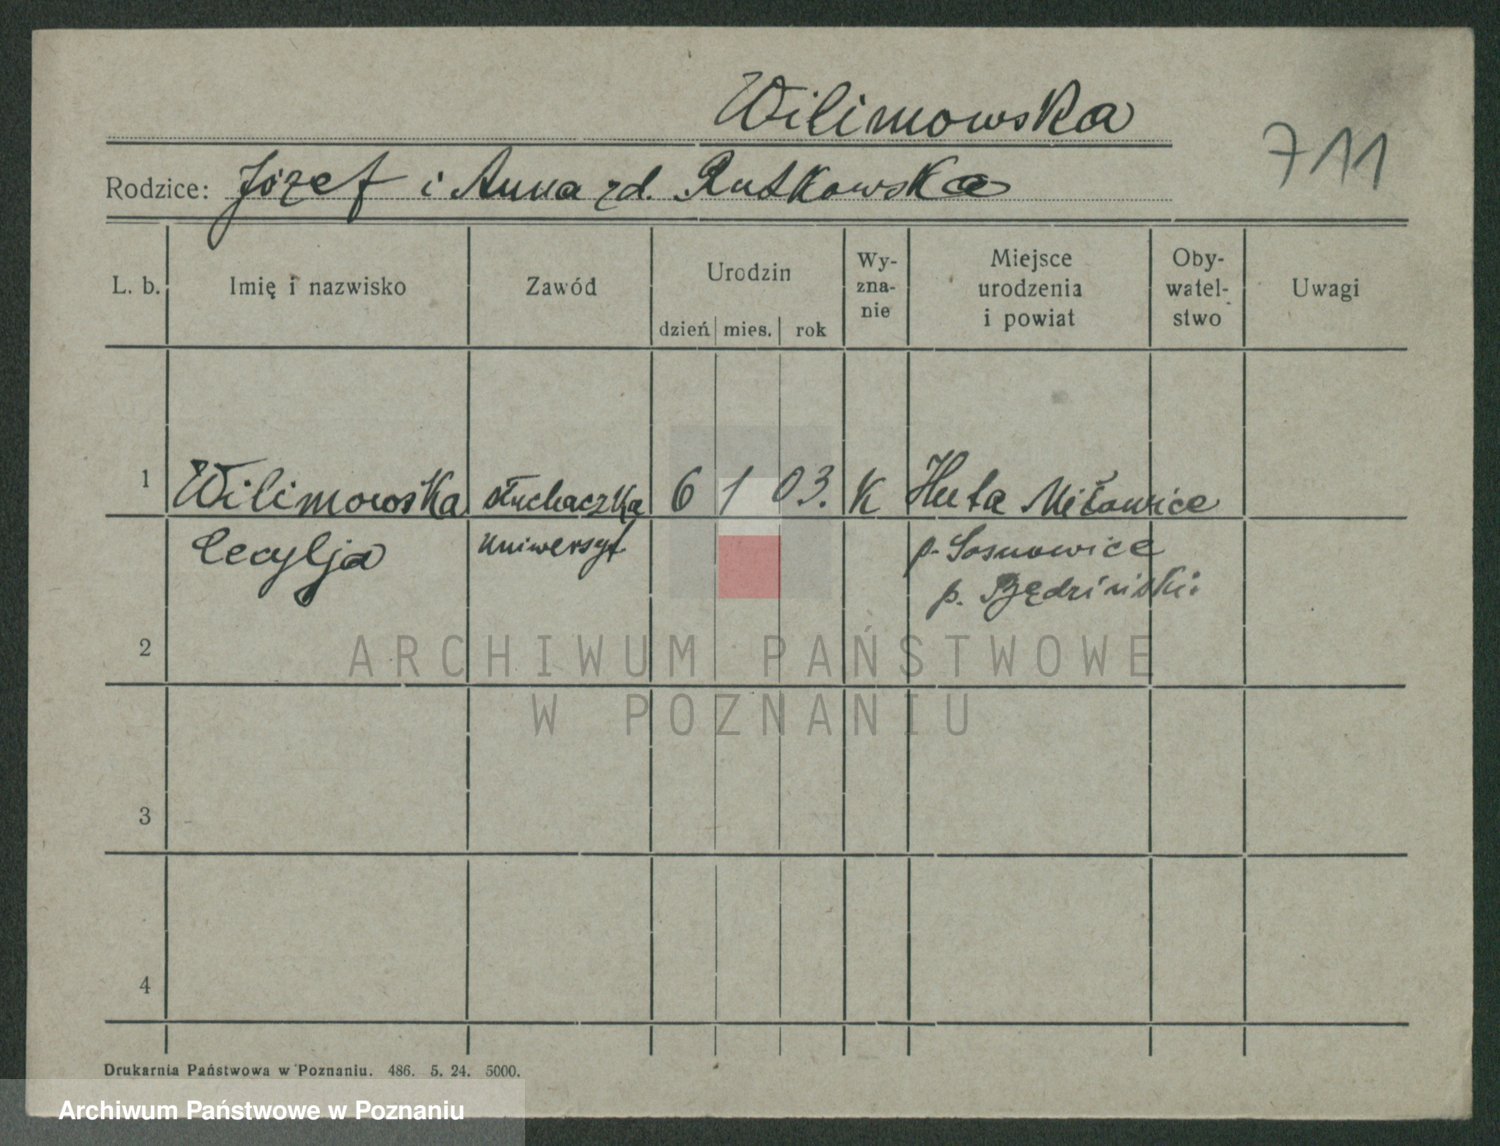 Wilimowska
711
Rodzice: Józef i Anna zd. Rutkowska
L. b. Imię i nazwisko Zawód Urodzin dzień mies. rok Wy-zna-nie Miejsce urodzenia i powiat Oby-watel-stwo Uwagi
1 Wilimowska słuchaczka 6 1 03. K Huta Miłowice
Cecylja Uniwersyt p. Sosnowice
p. Będziński
2
ARCHIWUM PAŃSTWOWE
W POZNANIU
3
4
Drukarnia Państwowa w Poznaniu. 486. 5. 24. 5000.
Archiwum Państwowe w Poznaniu